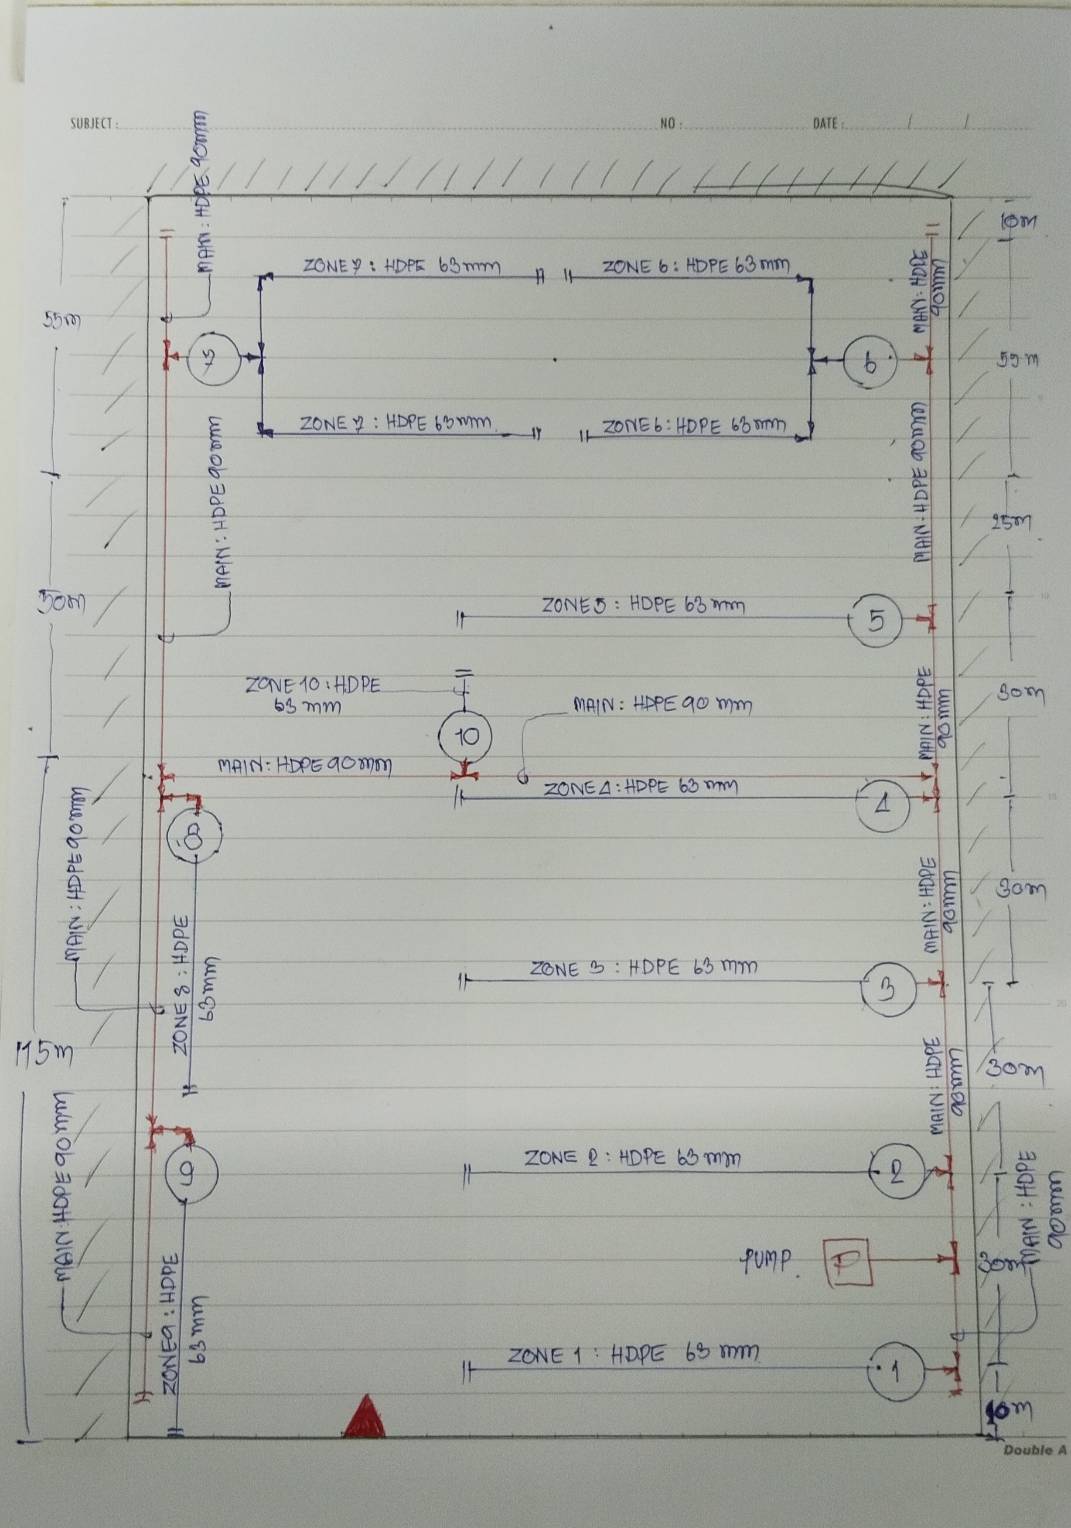 SUBJECT :
NO :
DATE : / /
MAIN : HDPE 90mm
10m
ZONE 7 : HDPE 63mm
ZONE 6 : HDPE 63mm
MAIN : HDPE
90mm
55m
7
6
55m
ZONE 7 : HDPE 63mm
ZONE 6 : HDPE 63mm
MAIN : HDPE 90mm
MAIN : HDPE 90mm
25m
50m
ZONE 5 : HDPE 63mm
5
ZONE 10 : HDPE
63mm
10
MAIN : HDPE 90mm
MAIN : HDPE
90mm
30m
MAIN : HDPE 90mm
ZONE 4 : HDPE 63mm
4
8
MAIN : HDPE 90mm
MAIN : HDPE
90mm
30m
ZONE 8 : HDPE
63mm
ZONE 3 : HDPE 63mm
3
115m
MAIN : HDPE
90mm
30m
MAIN : HDPE 90mm
9
ZONE 2 : HDPE 63mm
2
MAIN : HDPE
90mm
PUMP
P
30m
ZONE 9 : HDPE
63mm
ZONE 1 : HDPE 63mm
1
10m
Double A